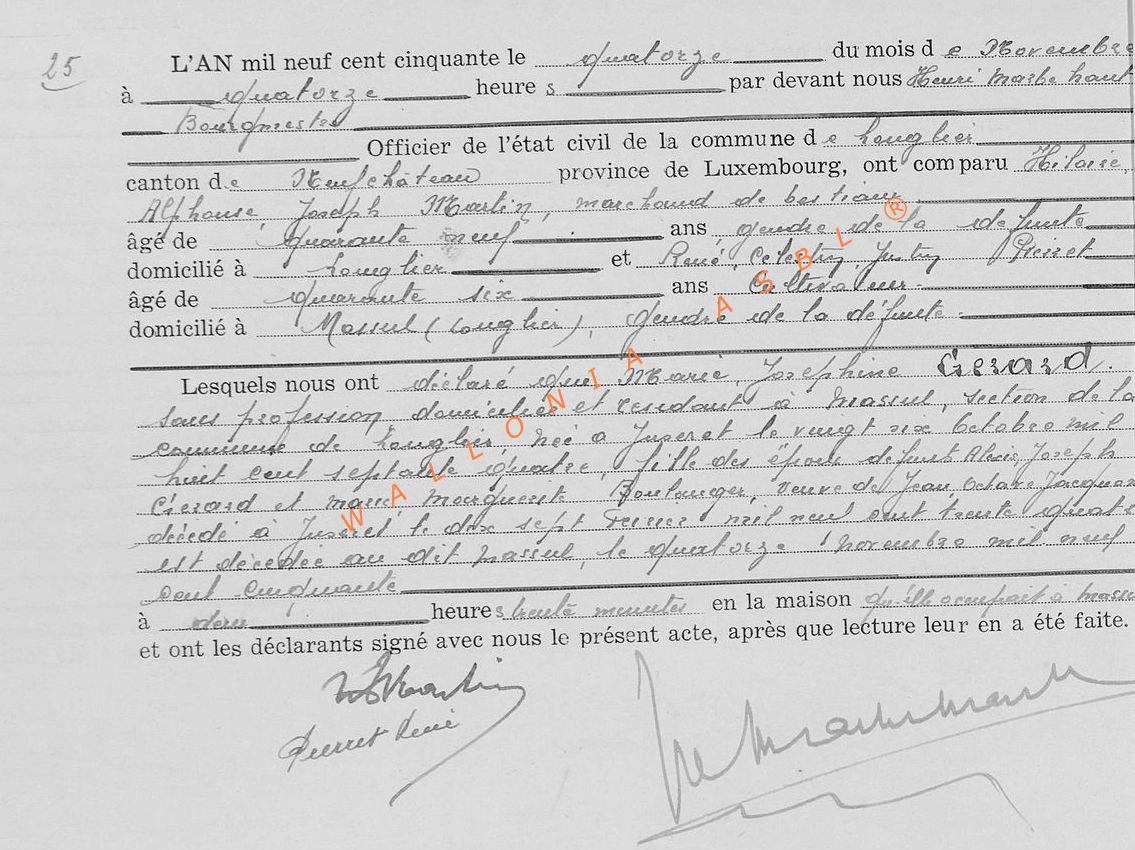 25
L'AN mil neuf cent cinquante le quatorze du mois de Novembre
à quatorze heures par devant nous Henri
Bourgmestre
Officier de l'état civil de la commune de Longlier
canton de Neufchâteau province de Luxembourg, ont comparu Hilaire,
Alphonse, Joseph Martin, marchand de bestiaux,
âgé de quarante neuf ans gendre de la défunte
domicilié à Longlier et René, Célestin, Justin Pierret
âgé de quarante six ans Cultivateur
domicilié à Massul (Longlier), gendre de la défunte.
Lesquels nous ont déclaré que Marie, Joséphine Gerard.
sans profession, domiciliée et résidant à Massul, section de la
commune de Longlier née à Juseret le vingt six Octobre mil
huit cent septante quatre, fille des époux défunts Alexis, Joseph
Gérard et Marie, Marguerite Boulanger, veuve de Jean, Octave Jacquard
décédé à Juseret le dix sept Février mil neuf cent trente quatre
est décédée au dit Massul, le quatorze novembre mil neuf
cent cinquante
à deux heures trente minutes en la maison qu'elle occupait à Massul
et ont les déclarants signé avec nous le présent acte, après que lecture leur en a été faite.
Martin
Pierret René
WALLONIA ASBL ®